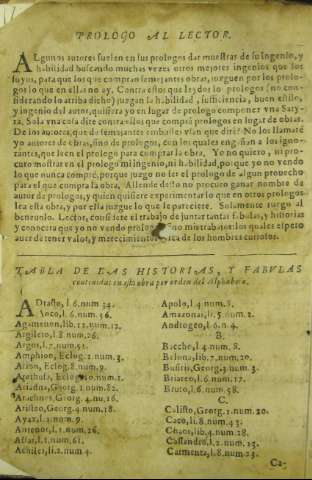 PROLOGO AL LECTOR.
Algunos autores suelen en sus prologos dar muestras de su ingenio, y
habilidad buscando muchas vezes otros mejores ingenios que los
suyos, para que los que compran semejantes obras, juzguen por los prolo-
gos lo que en ellas no ay. Contra estos que leydos los prologos (no con-
siderando lo arriba dicho) juzgan la habilidad, sufficiencia, buen estilo,
y ingenio del autor, quisiera yo en lugar de prologo componer vna Saty-
ra. Sola vna cosa dire contra los que compran prologos en lugar de obras.
De los autores, que de semejantes embustes vsan que dirè? No los llamarè
yo autores de obras, sino de prologos, con los quales engañan a los igno-
rantes, que leen el prologo para comprar la obra. Yo no quiero, ni pro-
curo mostrar en el prologo mi ingenio, ni habilidad, porque yo no vendo
lo que nunca comprè, porque juzgo no ser el prologo de algun prouecho
para el que compra la obra. Allende desto no procuro ganar nombre de
autor de prologos, y quien quisiere experimentar lo que en otros prologos
lea esta obra, y por ella juzgue lo que le pareciere. Solamente ruego al
beneuolo Lector, considere el trabajo de juntar tantas fabulas, y historias
y conocera que yo no vendo prologos, sino mis trabajos los quales espero
auer de tener valor, y merecimiento cerca de los hombres curiosos.
TABLA DE LAS HISTORIAS, Y FABVLAS
contenidas en esta obra por orden del Alphabeto.
A
Drasto, l.6.num.34.
num.36.
Agamenon, lib.11.num.12.
Argileto, l.8.num.26.
Argos, l.7.num.
Amphion, Eclog.2.num.3.
Arion, Eclog.8.num.9.
Arethusa, Eclog.10.num.1.
Ariadna, Georg.1.num.
Arachnes, Georg.4.nu.16.
Aristeo, Georg.4.num.18.
Ayax, l.1.num.9.
Antenor, l.1.num.26.
num.61.
Achiles, l.2.num.4.
Apolo, l.4.num.8.
Amazonas, l.5.num.2.
Androgeo, l.6.n.4.
B.
Baccho, l.4.num.8.
Belona, l.8.num.20.
Busiris, Georg.4.num.3.
Briareo, l.6.num.17.
Bruto, l.6.num.58.
C.
Calisto, Georg.1.num.20.
Caco, l.8.num.43.
Chaos, lib.4.num.28.
Cassandra, l.2.num.15.
Carmenta, l.8.num.23.
Ca-